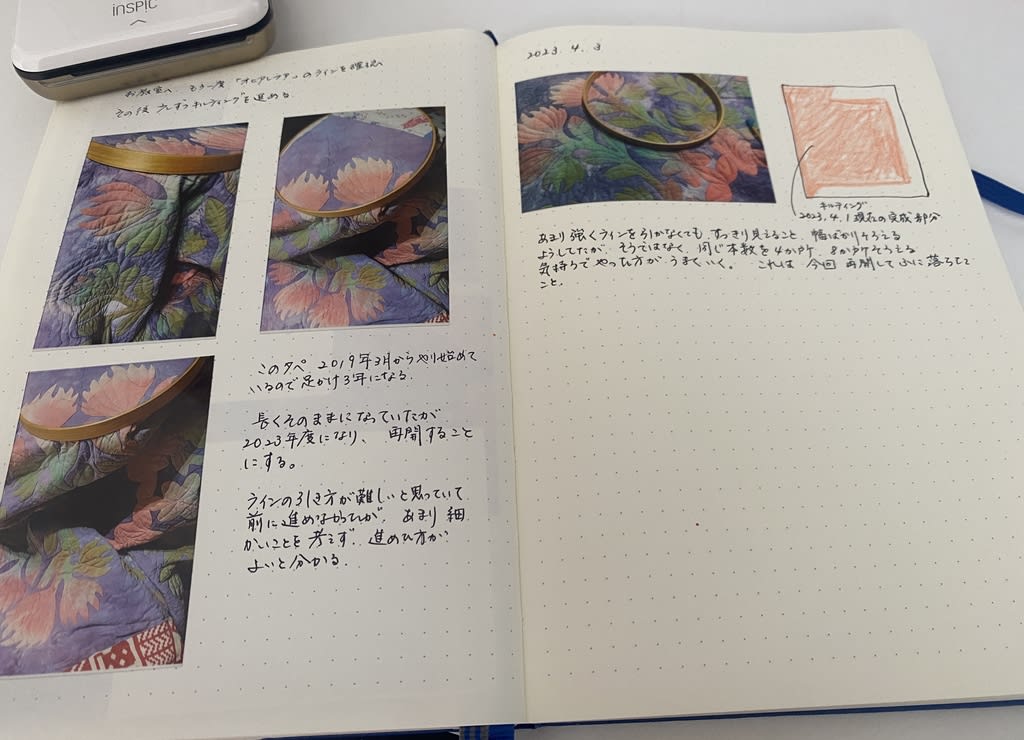 iNSPiC
お教室へ もう一度「オヒアレフア」のラインを確認
その後 少しずつキルティングを進める.
このタペ 2019年3月からやり始めて
いるので足かけ3年になる.
長くそのままになっていたが
2023年度になり、 再開すること
にする。
ラインの引き方が難しいと思っていて
前に進めなかったが, あまり 細
かいことを考えず 進めた方が
よいと分かる.
2023. 4. 3
キルティング
2023.4.1 現在の完成部分
あまり強くラインを引かなくても, すっきり見えること, 幅ばかりそろえる
ようしてたが, そうではなく 同じ本数を4か所 8か所そろえる
気持ちでやった方が うまくいく。 これは 今回 再開して ふに落ちた
こと.